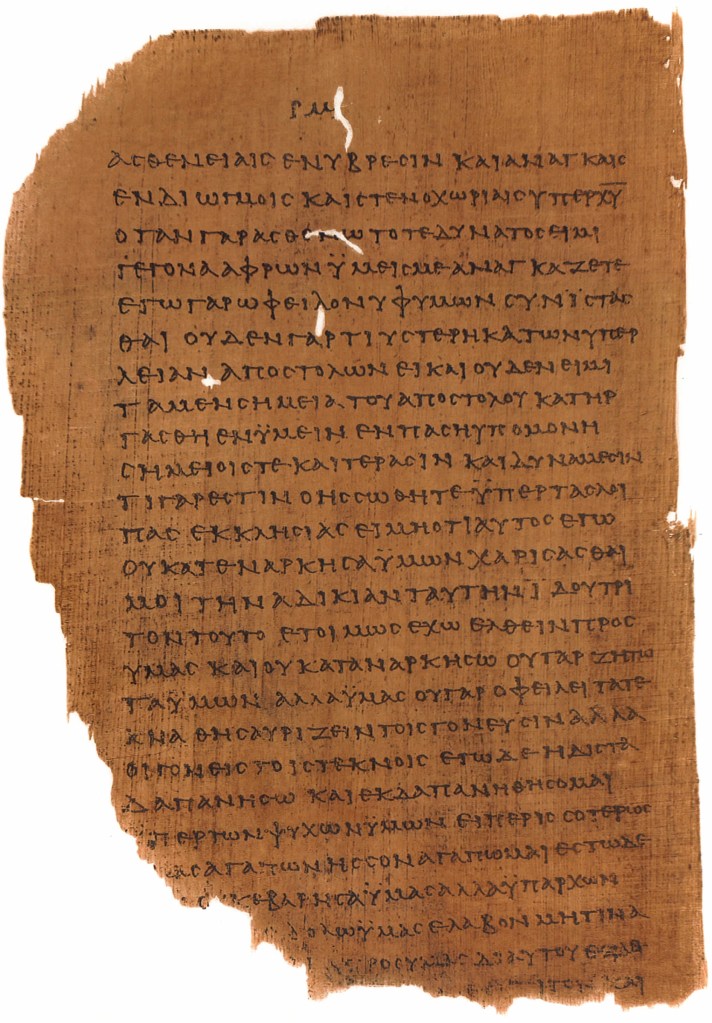 ΡΜ
ΑΣΘΕΝΕΙΑΙΣ ΕΝ ΥΒΡΕΣΙΝ ΚΑΙ ΑΝΑΓΚΑΙΣ
ΕΝ ΔΙΩΓΜΟΙΣ ΚΑΙ ΣΤΕΝΟΧΩΡΙΑΙΣ ΥΠΕΡ Χ̅Υ̅
ΟΤΑΝ ΓΑΡ ΑΣΘΕΝΩ ΤΟΤΕ ΔΥΝΑΤΟΣ ΕΙΜΙ
ΓΕΓΟΝΑ ΑΦΡΩΝ ΫΜΕΙΣ ΜΕ ΑΝΑΓΚΑΖΕΤΕ
ΕΓΩ ΓΑΡ ΩΦΕΙΛΟΝ ΥΦ ΥΜΩΝ ΣΥΝΪΣΤΑΣ
ΘΑΙ ΟΥΔΕΝ ΓΑΡ ΤΙ ΥΣΤΕΡΗΚΑ ΤΩΝ ΥΠΕΡ
ΛΕΙΑΝ ΑΠΟΣΤΟΛΩΝ ΕΙ ΚΑΙ ΟΥΔΕΝ ΕΙΜΙ
ΤΑ ΜΕΝ ΣΗΜΕΙΑ ΤΟΥ ΑΠΟΣΤΟΛΟΥ ΚΑΤΗΡ
ΓΑΣΘΗ ΕΝ ΫΜΕΙΝ ΕΝ ΠΑΣΗ ΥΠΟΜΟΝΗ
ΣΗΜΕΙΟΙΣ ΤΕ ΚΑΙ ΤΕΡΑΣΙΝ ΚΑΙ ΔΥΝΑΜΕΣΙΝ
ΤΙ ΓΑΡ ΕΣΤΙΝ Ο ΗΣΣΩΘΗΤΕ ΫΠΕΡ ΤΑΣ ΛΟΙ
ΠΑΣ ΕΚΚΛΗΣΙΑΣ ΕΙ ΜΗ ΟΤΙ ΑΥΤΟΣ ΕΓΩ
ΟΥ ΚΑΤΕΝΑΡΚΗΣΑ ΫΜΩΝ ΧΑΡΙΣΑΣΘΑΙ
ΜΟΙ ΤΗΝ ΑΔΙΚΙΑΝ ΤΑΥΤΗΝ ΪΔΟΥ ΤΡΙ
ΤΟΝ ΤΟΥΤΟ ΕΤΟΙΜΩΣ ΕΧΩ ΕΛΘΕΙΝ ΠΡΟΣ
ΥΜΑΣ ΚΑΙ ΟΥ ΚΑΤΑΝΑΡΚΗΣΩ ΟΥ ΓΑΡ ΖΗΤΩ
ΤΑ ΥΜΩΝ ΑΛΛΑ ΫΜΑΣ ΟΥ ΓΑΡ ΟΦΕΙΛΕΙ ΤΑ ΤΕ
ΚΝΑ ΘΗΣΑΥΡΙΖΕΙΝ ΤΟΙΣ ΓΟΝΕΥΣΙΝ ΑΛΛΑ
ΟΙ ΓΟΝΕΙΣ ΤΟΙΣ ΤΕΚΝΟΙΣ ΕΓΩ ΔΕ ΗΔΙΣΤΑ
ΔΑΠΑΝΗΣΩ ΚΑΙ ΕΚΔΑΠΑΝΗΘΗΣΟΜΑΙ
ΠΕΡ ΤΩΝ ΨΥΧΩΝ ΥΜΩΝ ΕΙ ΠΕΡΙΣΣΟΤΕΡΩΣ
ΑΣ ΑΓΑΠΩΝ ΗΣΣΟΝ ΑΓΑΠΩΜΑΙ ΕΣΤΩ ΔΕ
ΚΕΒΑΡΗΣΑ ΫΜΑΣ ΑΛΛΑ ΫΠΑΡΧΩΝ
ΟΛΩ ΫΜΑΣ ΕΛΑΒΟΝ ΜΗ ΤΙΝΑ
ΡΟΣ ΥΜΑΣ ΔΙ ΑΥΤΟΥ
ΚΑΙ